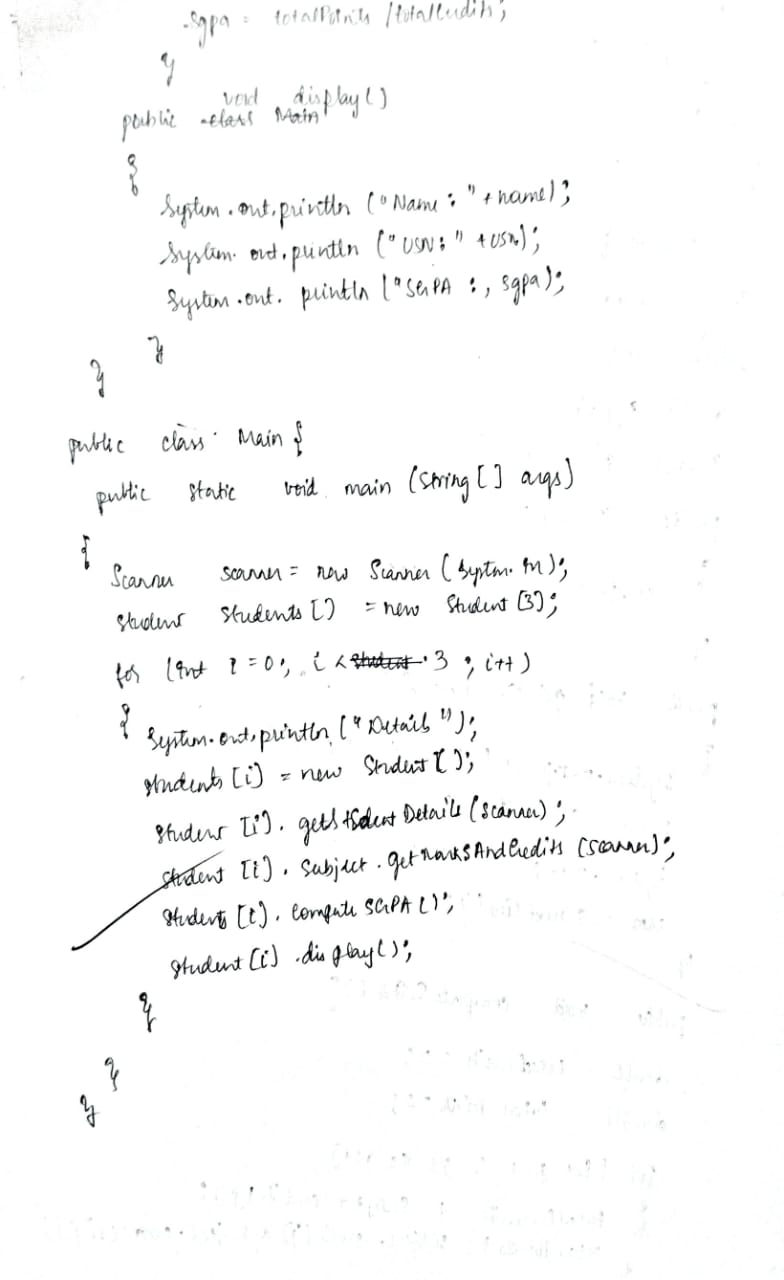 sgpa = totalPoints / totalCredits;
}
void display()
public class Main
{
System.out.println ("Name : " + name);
System.out.println ("USN : " + usn);
System.out.println ("SGPA :, sgpa);
}
}
public class Main {
public static void main (String [] args)
{
Scanner scanner = new Scanner (System.in);
Student Students [] = new Student [3];
for (int i = 0; i < student 3 ; i++)
{
System.out.println ("Details");
students [i] = new Student ();
student [i]. getStudent Details (scanner);
student [i]. Subject . getMarksAndCredits (scanner);
students [i]. compute SGPA ();
student [i] .display();
}
}
}